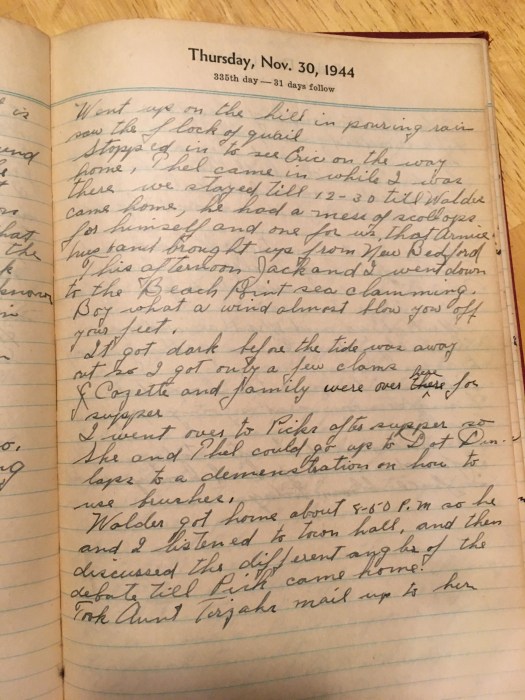 is
Thursday, Nov. 30, 1944
335th day — 31 days follow
Went up on the hill in pouring rain
saw the flock of quail
Stopped in to see Eric on the way
home. Phel came in while I was
there we stayed till 12-30 till Walder
came home, he had a mess of scollops
for himself and one for us, that Arnie
husband brought up from New Bedford
This afternoon Jack and I went down
to the Beach Point sea clamming.
Boy what a wind almost blow you off
your feet.
It got dark before the tide was away
out so I got only a few clams
& Cozette and family were over here there for
supper
I went over to Picks after supper so
she and Phel could go up to Dot Dun-
laps to a demenstration on how to
use brushes.
Walder got home about 8-50 P.M so he
and I listened to town hall, and then
discussed the different angles of the
debate till Pick came home.
Took Aunt Tirzahs mail up to her
und
hat
the